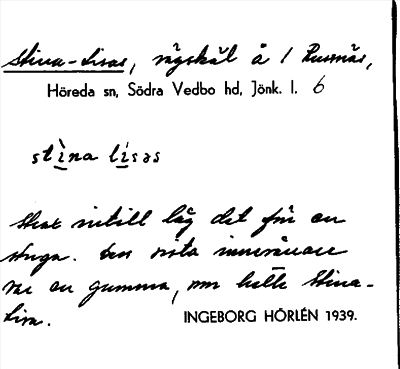 Stina-Lisas, vägskäl å 1 Rusnäs,
Höreda sn, Södra Vedbo hd, Jönk. l. 6
stìna lìsas
Strax intill låg det för en
stuga. Den sista innevånare
var en gumma, som hette Stina-
Lisa.
INGEBORG HÖRLÉN 1939.